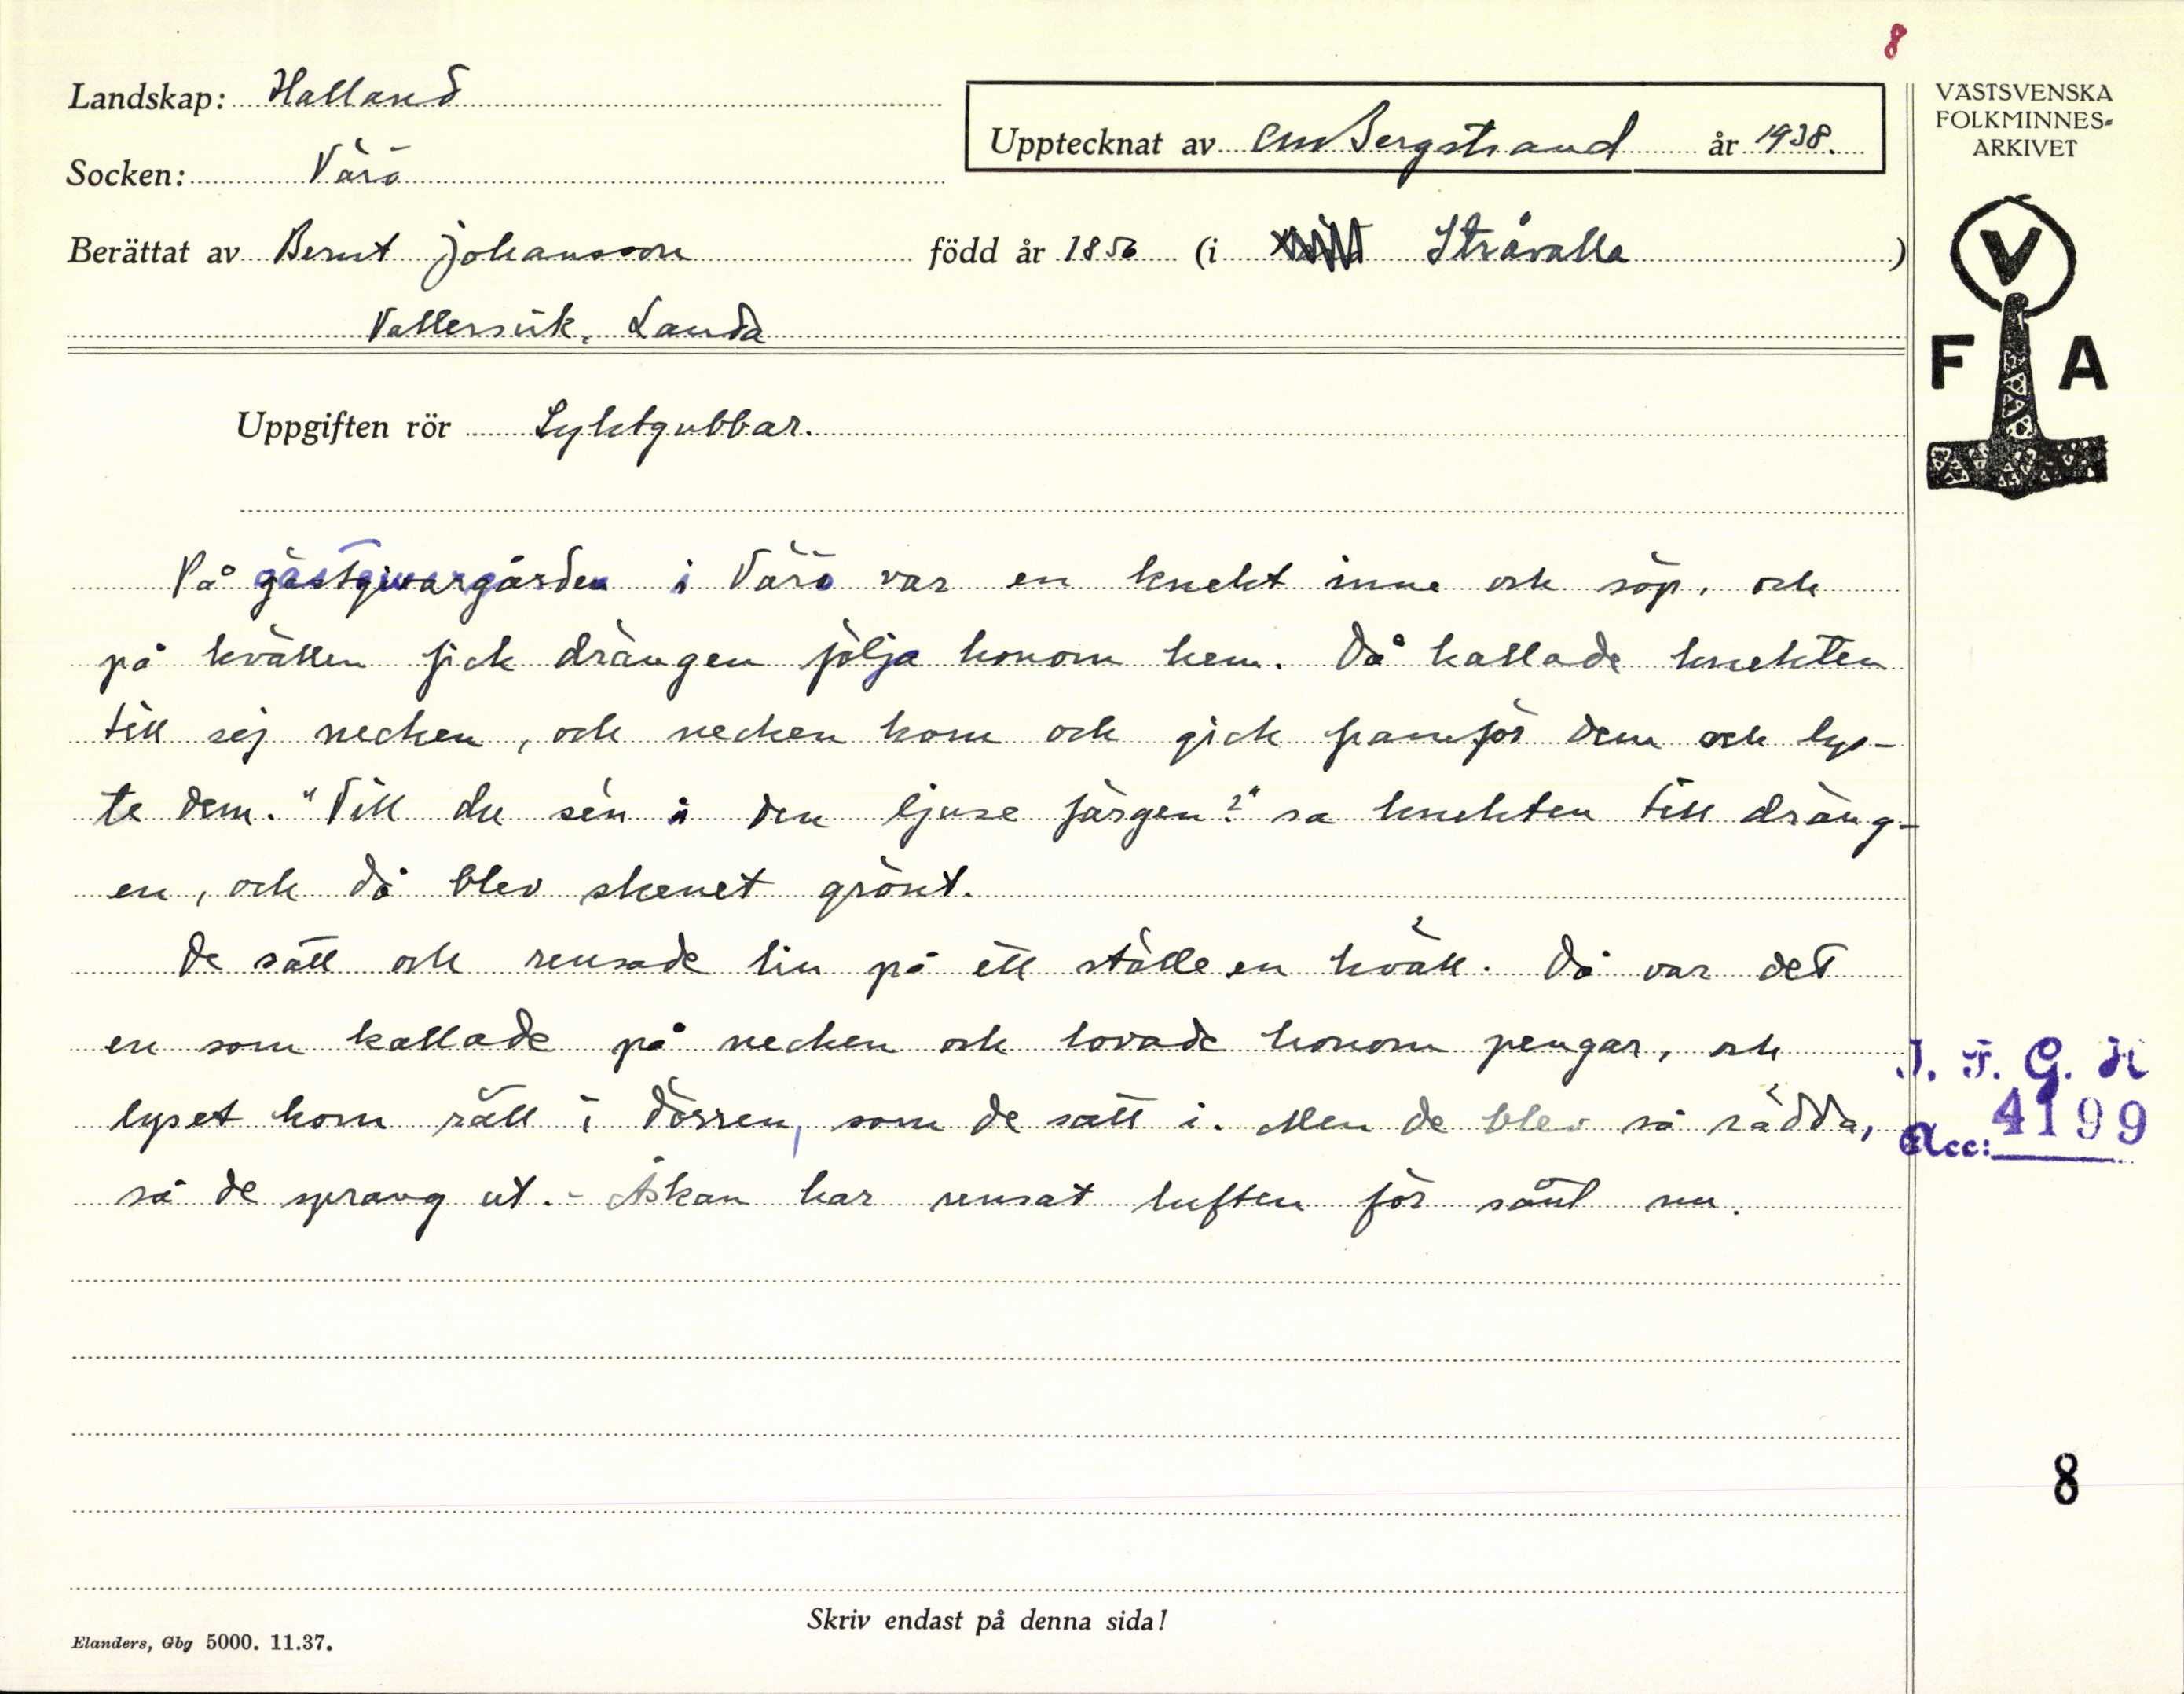 8
Landskap: Halland
VÄSTSVENSKA
FOLKMINNES-
ARKIVET
Upptecknat av CM Bergstrand år 1938.
Socken: Värö
Berättat av Bernt Johansson född år 1856 (i Stråvalla)
Vallersvik, Landa
V
F A
Uppgiften rör Lyktgubbar.
På gästgivargården i Värö var en knekt inne och söp, och
på kvällen fick drängen följa honom hem. Då kallade knekten
till sej necken, och necken kom och gick framför dem och lys-
te dem. "Vill du sen i den ljuse färgen?" sa knekten till dräng-
en, och då blev skenet grönt.
De satt och rensade lin på ett ställe en kväll. Då var det
en som kallade på necken och lovade honom pengar, och
lyset kom rätt i dörren, som de satt i. Men de blev så rädda,
så de sprang ut. - Åskan har rensat luften för sånt nu.
I. F. G. H
Acc: 4199
8
Skriv endast på denna sida!
Elanders, Gbg 5000. 11.37.